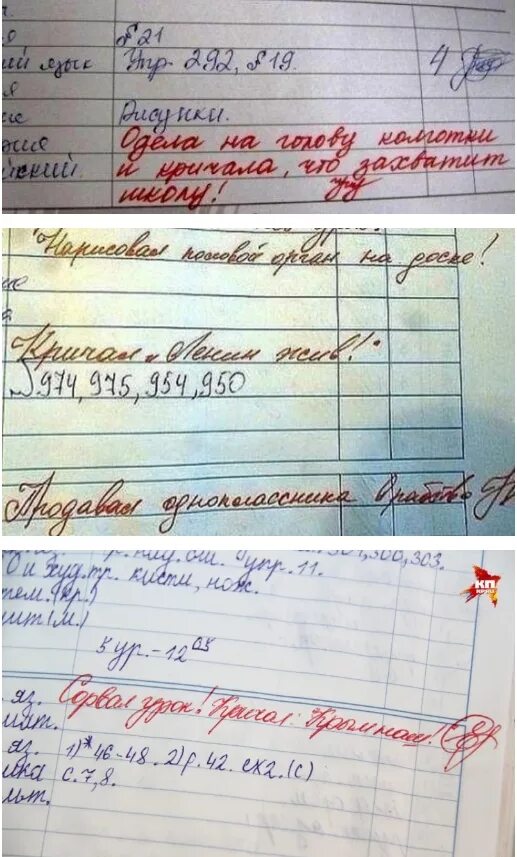 №21
ий язык Упр. 292, §19. 4
Рисунки.
Одела на голову колготки
и кричала, что захватит
школу!
Нарисовал половой орган на доске!
Кричал „Ленин жив!"
974, 975, 954, 950
Продавал одноклассника в рабство
упр. 11. 300, 303.
О и худ. тр. кисти, нож.
тем. (кр.)
ит (м.)
5 ур. - 12 05
яз. Сорвал урок! Кричал: Крым наш!
мат.
яз. 1)* 46-48. 2) р. 42. сх2. (с)
ика с. 7, 8.
КП